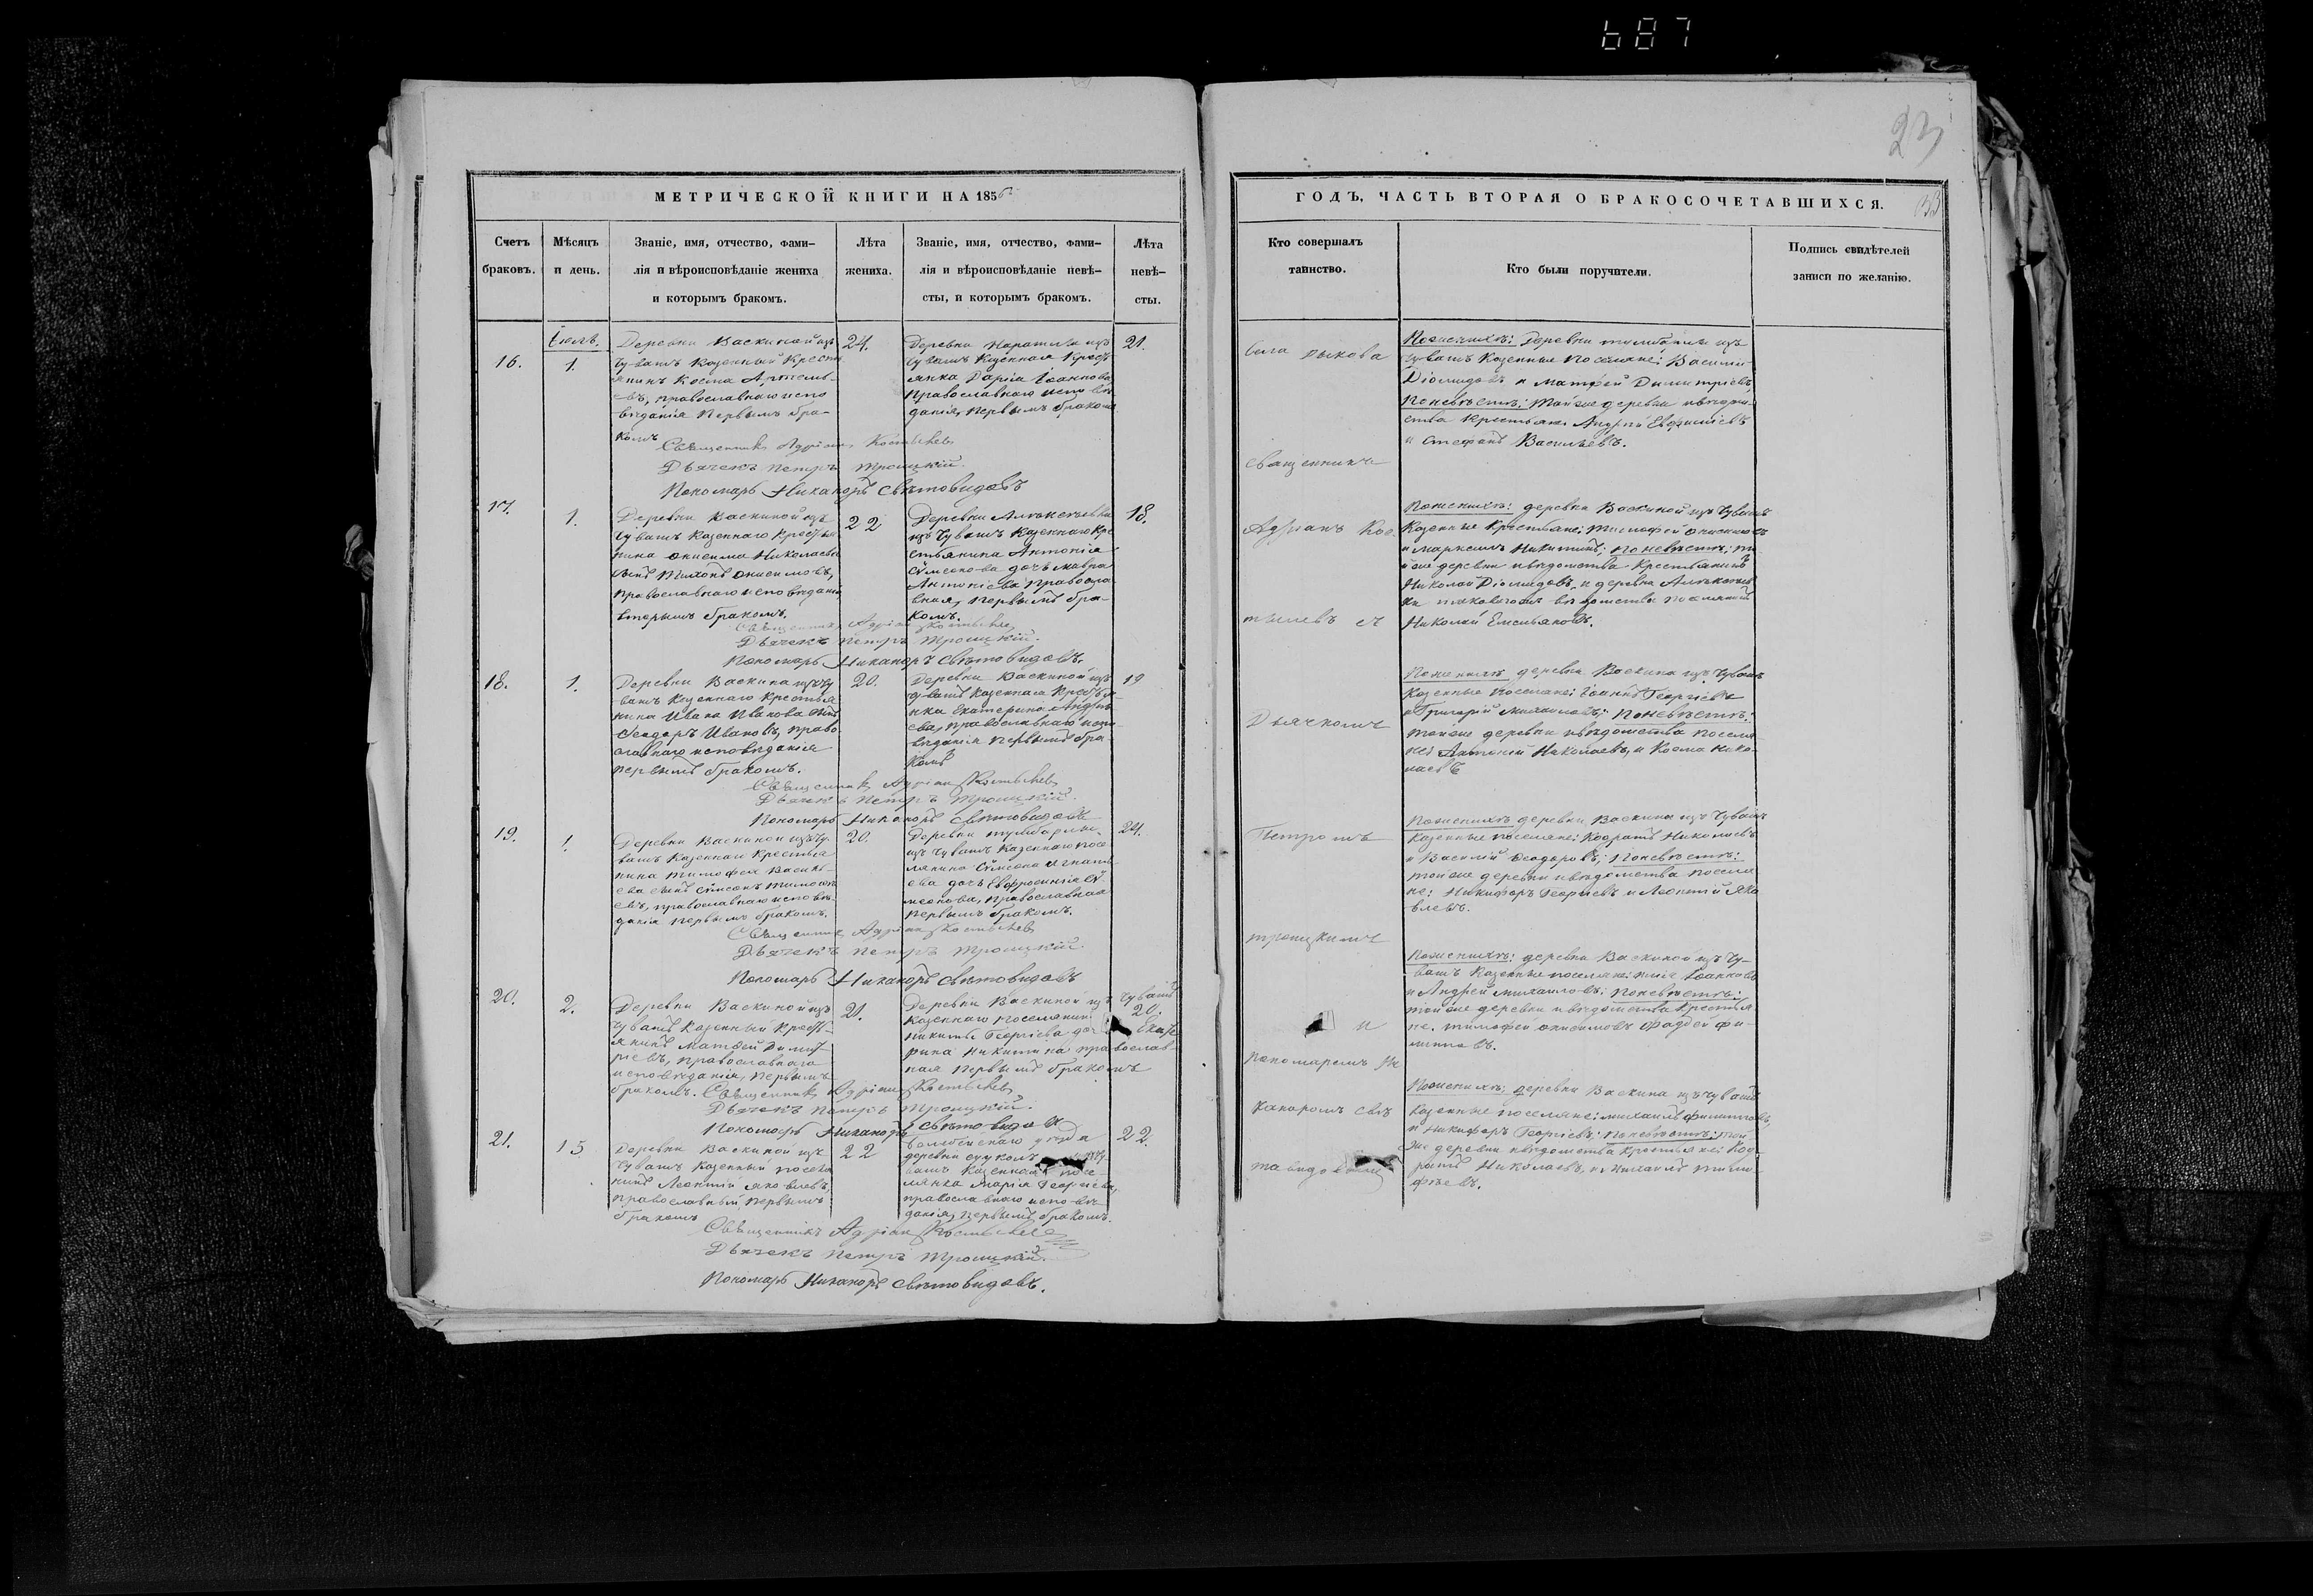 687
23
МЕТРИЧЕСКОЙ КНИГИ НА 1856
Счетъ браковъ.
Мѣсяцъ и день.
Званіе, имя, отчество, фами-
лія и вѣроисповѣданіе жениха
и которымъ бракомъ.
Лѣта жениха.
Званіе, имя, отчество, фами-
лія и вѣроисповѣданіе невѣ-
сты, и которымъ бракомъ.
Лѣта невѣ-
сты.
16.
Іюль.
1.
Деревни Васкиной изъ
Чувашъ Казенный Кресть
янинъ Косма Артемь-
евъ, православнаго испо
вѣданія первымъ бра-
комъ
24.
Деревни изъ
Чувашъ Казенная Кресть
янка Дарія Іоаннова
Православнаго испо вѣ
данія, первымъ бракомъ
21.
Священникъ Адріанъ Костычевъ
Дьячекъ Петръ Троицкій.
Пономарь Никаноръ Свѣтовидовъ
17.
1.
Деревни Васкиной изъ
Чувашъ Казеннаго Крестья
нина Онисима Николаева
сынъ Тихонъ Онисимовъ,
Православнаго исповѣданія
вторымъ бракомъ.
22
Деревни
изъ Чувашъ Казеннаго Кре
стьянина Антонія
Сѵмеонова дочь Мавра
Антоніева Правосла
вная, первымъ бра-
комъ.
18.
Священникъ Адріанъ Костычевъ
Дьячекъ Петръ Троицкій.
Пономарь Никаноръ Свѣтовидовъ.
18.
1.
Деревни Васкина изъ Чу
вашъ Казеннаго Крестья
нина Ивана Иванова сынъ
Ѳеодоръ Ивановъ, право
славнаго исповѣданія
первымъ бракомъ.
20.
Деревни Васкиной изъ
Чувашъ Казенная Крестья-
нка Екатерина Андре
ева, православнаго испо-
вѣданія первымъ бра-
комъ
19
Священникъ Адріанъ Костычевъ
Дьячекъ Петръ Троицкій.
Пономарь Никаноръ Свѣтовидовъ
19.
1.
Деревни Васкиной изъ Чу
вашъ Казеннаго Крестья
нина Тимофея Василь-
ева сынъ Сѵмеонъ Тимофе
евъ, православнаго исповѣ-
данія первымъ бракомъ.
20.
Деревни
изъ Чувашъ Казеннаго посе
лянина Сѵмеона Игнать
ева дочь Евфросинія Сѵ-
меонова, православная
первымъ бракомъ.
24.
Священникъ Адріанъ Костычевъ
Дьячекъ Петръ Троицкій.
Пономарь Никаноръ Свѣтовидовъ
20.
2.
Деревни Васкиной изъ
Чувашъ Казенный Кресть-
янинъ Матѳей Димит-
ріевъ, православнаго
исповѣданія, первымъ
бракомъ.
21.
Деревни Васкиной изъ Чувашъ
Казеннаго поселянина
Никиты Георгіева Екате
рина Никитина православ-
ная первымъ бракомъ
20.
Священникъ Адріанъ Костычевъ
Дьячекъ Петръ Троицкій.
Пономарь Никаноръ Свѣтовидовъ
21.
15
Деревни Васкиной изъ
Чувашъ Казенный поселя
нинъ Леонтій Яковлевъ,
православный первымъ
бракомъ
22
уѣзда
деревни
вашъ Казенная посе-
лянка Марія Георгіева,
православнаго исповѣ
данія, первымъ бракомъ.
22.
Священникъ Адріанъ Костычевъ
Дьячекъ Петръ Троицкій.
Пономарь Никаноръ Свѣтовидовъ.
ГОДЪ, ЧАСТЬ ВТОРАЯ О БРАКОСОЧЕТАВШИХСЯ.
Кто совершалъ
таинство.
Кто были поручители.
Подпись свидѣтелей
записи по желанію.
Священникъ
Адріанъ Кос
тычевъ съ
Дьячкомъ
Петромъ
Троицкимъ
и
Пономаремъ Ни
каноромъ Свѣ
товидовымъ
По женихѣ: Деревни изъ
Чувашъ Казенные поселяне: Василій
Діомидовъ и Матѳей Димитріевъ,
По невѣстѣ: той же деревни и вѣдом-
ства Крестьяне Андрей Евфиміевъ
и Стефанъ Васильевъ.
По женихѣ: деревни Васкиной изъ Чувашъ
Казенные Крестьяне: Тимофей Онисимовъ
и Никитинъ; по невѣстѣ: то
й же деревни и вѣдомства Крестьянинъ
Николай Діомидовъ, и деревни
вѣдомства поселянинъ
Николай Емельяновъ.
По женихѣ деревни Васкина изъ Чувашъ
Казенные поселяне: Іоаннъ Георгіевъ
и Григорій Михаиловъ; По невѣстѣ:
той же деревни и вѣдомства поселя
не: Антоній Николаевъ, и Косма Нико-
лаевъ
По женихѣ деревни Васкина изъ Чувашъ
Казенные поселяне: Кодратъ Николаевъ
и Василій Ѳеодоровъ; По невѣстѣ:
той же деревни и вѣдомства поселя
не: Никифоръ Георгіевъ и Леонтій Яко
влевъ.
По женихѣ: деревни Васкиной изъ Чу-
вашъ Казенные поселяне: Іоанновъ
и Андрей Михаиловъ; по невѣстѣ:
той же деревни и вѣдомства Крестья
не. Тимофей Онисимовъ Фаддей Фи-
липповъ.
По женихѣ: деревни Васкина изъ Чувашъ
Казенные поселяне: Михаилъ Филипповъ,
и Никифоръ Георгіевъ; по невѣстѣ: той
же деревни и вѣдомства Крестьяне: Код
ратъ Николаевъ, и Михаилъ Тимо-
фѣевъ.